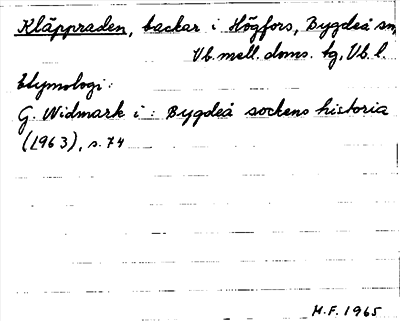 Kläppraden, backar i Högfors, Bygdeå sn,
Vb. mell. doms. tg, Vb. l.
Etymologi:
G. Widmark i: Bygdeå sockens historia
(1963), s. 74
M.F. 1965